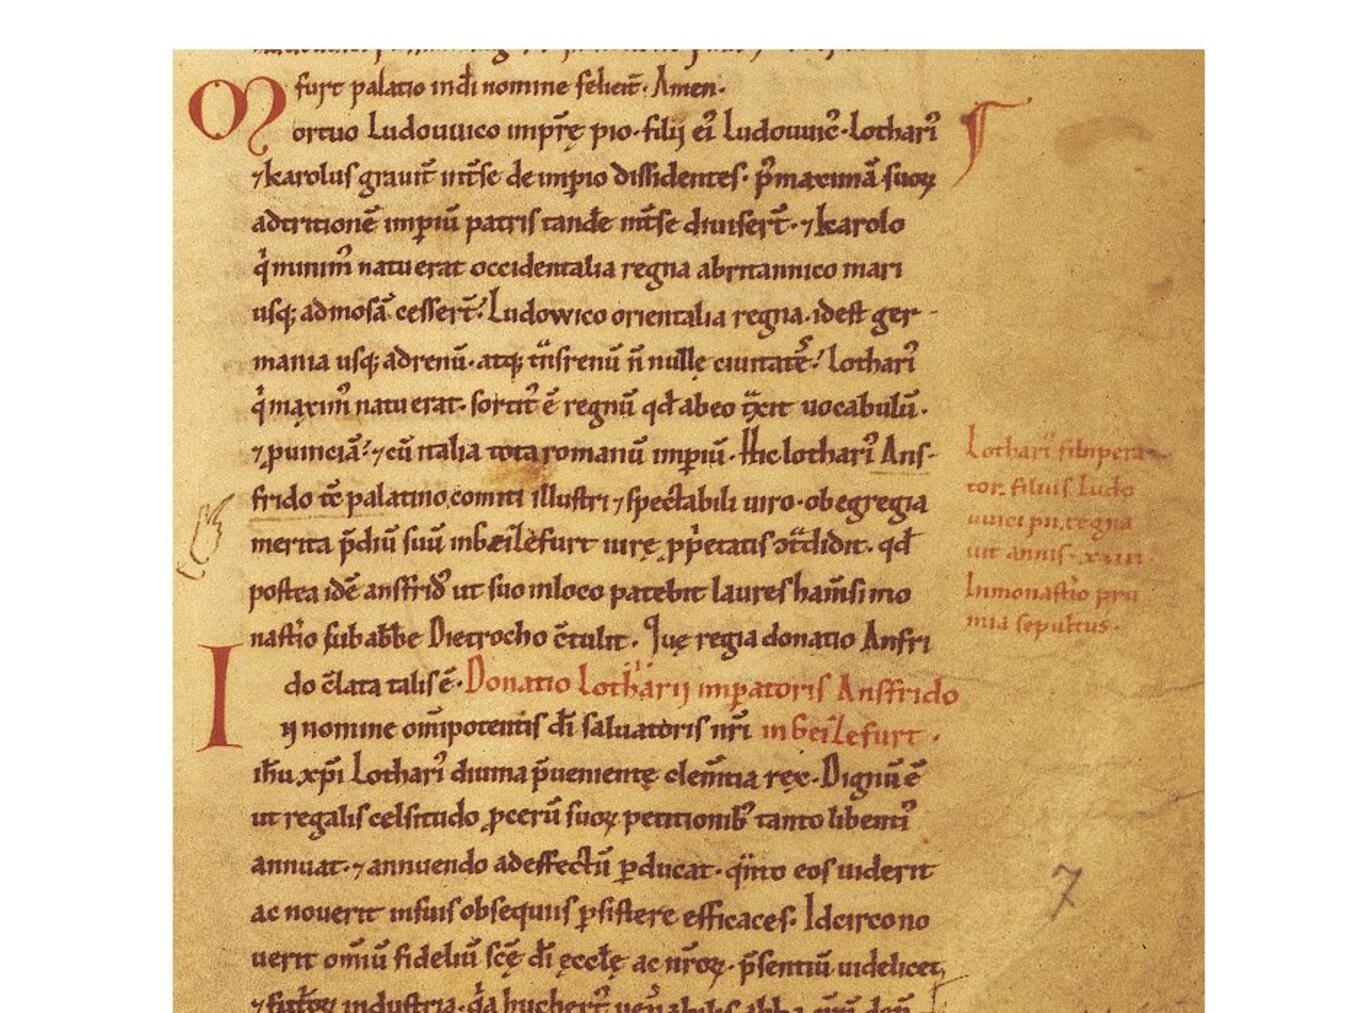 furt palatio in dı̄ nomine felicit̄. Amen.
Mortuo Ludouuico imp̄rę pio. filij ei᾿ Ludouuic᾿. Lothari᾿
⁊ karolus grauit̄ int̄ se de imp̄io dissidentes. p᾿ maximā suoꝝ
adtritionē imp̄iū patris tandē int̄ se diuiser̄t. ⁊ karolo
qͥ minim᾿ natu erat occidentalia regna a britannico mari
usq; ad mosā cesser̄t. Ludowico orientalia regna. id est ger-
mania usq; ad renū. atq; tͣns renū n̄ nullę ciuitatēs. Lothari᾿
qͥ maxim᾿ natu erat. sortit᾿ ē regnū qđ ab eo tͣxit uocabulū.
⁊ puinciā. ⁊ cū italia tota romanū imp̄iū. Hic lothari᾿ Ans-
frido tc̄ palatino comiti illustri ⁊ spectabili uiro. ob egregia
merita p̄diū suū in beıłefurt iurę pp̄etatis ꝯtͣdidit. qđ
postea idē ansfrid᾿ ut suo in loco patebit laureshām̄si mo
nast̄io sub abb̄e Dietrocho c̄tulit. Quę regia donatio Ansfri
do c̄lata talis ē. Donatio Lotharij imp̄atoris Ansfrido
IN nomine om̄ipotentis dı̄ saluatoris nr̄i in beıłefurt.
ih̄u xp̄i Lothari᾿ diuina p̄ueniente clem̄tia rex. Dignū ē
ut regalis celsitudo ꝓcerū suoꝝ petitionib᾿ tanto libenti᾿
annuat. ⁊ annuendo ad effectū ꝑducat. qͣnto eos uiderit
ac nouerit in suis obsequiis ꝑsistere efficaces. Idcirco no
uerit om̄iū fideliū sc̄ę dı̄ ęccłę ac nr̄oꝝ. p̄sentiū uidelicet,
⁊ futūroꝝ industria. qͣ huchert᾿ uen̄abilis abba
Lothari᾿
filius Ludo
uuici pii, regna
uit annis.
In monast̄io pru
mia sepultus.
7